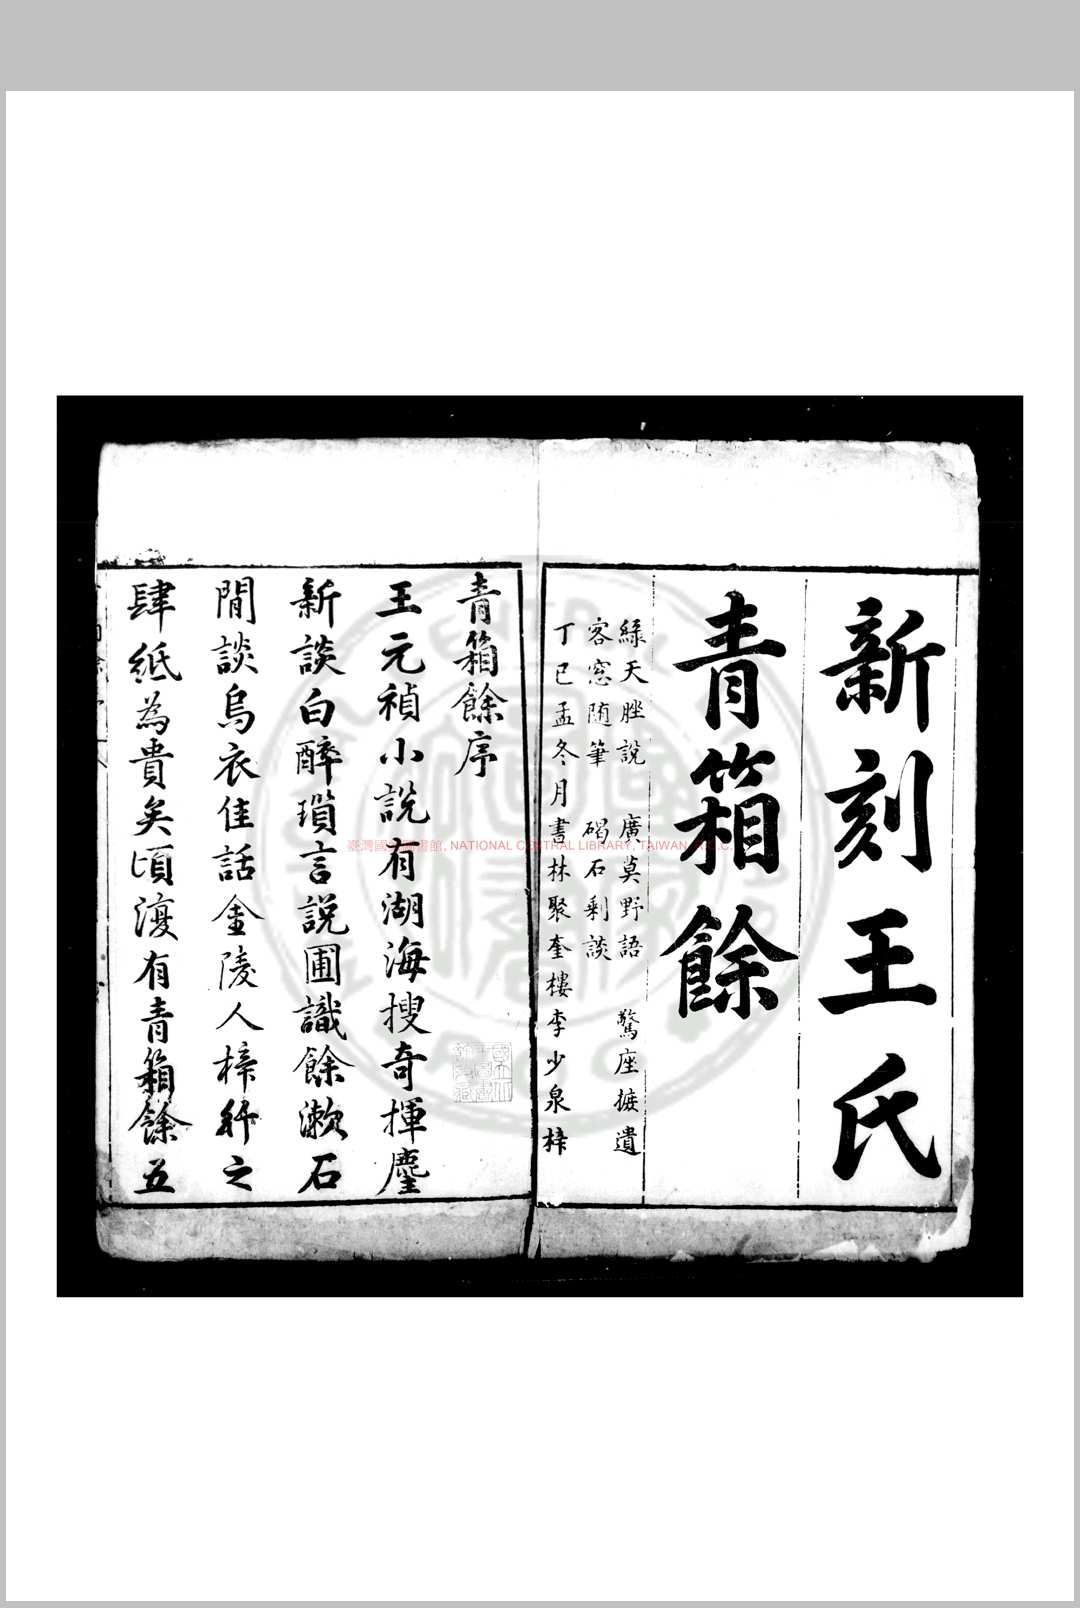 新刻王氏
青箱餘
綠天脞說　廣莫野語　驚座摭遺
客窓随筆　碣石剩談
丁巳孟冬月書林聚奎樓李少泉梓
青箱餘序
王元禎小說有湖海搜奇揮麈
新談白醉瑣言說圃識餘漱石
閒談烏衣佳話金陵人梓行之
肆紙為貴矣頃復有青箱餘五
臺灣國家圖書館, NATIONAL CENTRAL LIBRARY, TAIWAN, R.O.C.